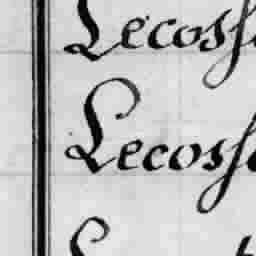 Lecoss
Lecoss